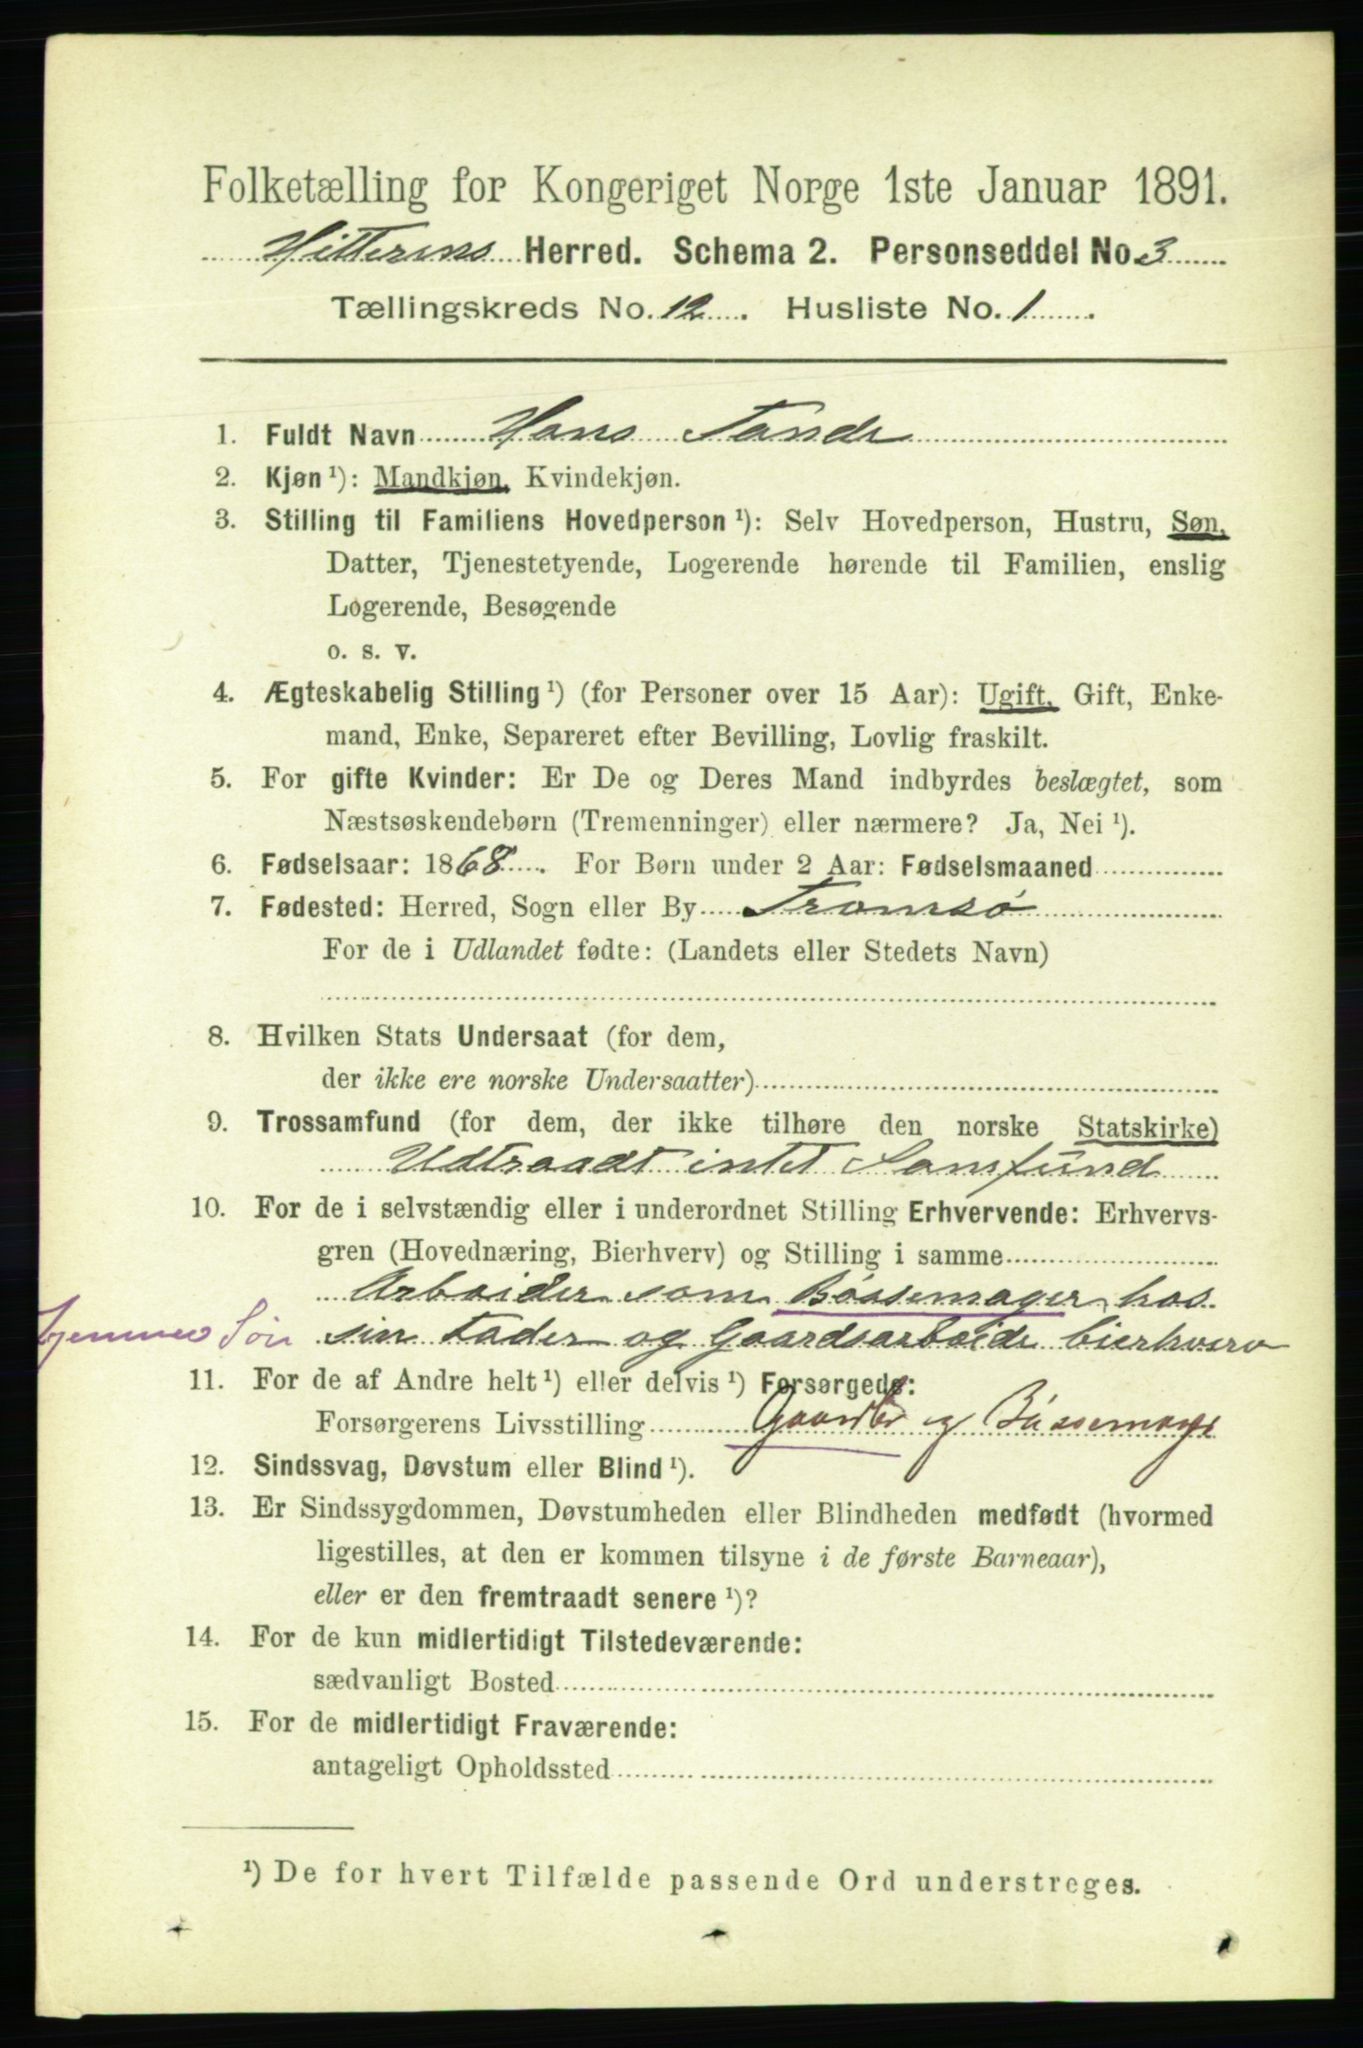 Folketælling for Kongeriget Norge 1ste Januar 1891.
Hitterens Herred. Schema 2. Personseddel No. 3
Tællingskreds No. 12. Husliste No. 1.
1. Fuldt Navn Hans Tande
2. Kjøn ¹): Mandkjøn, Kvindekjøn.
3. Stilling til Familiens Hovedperson ¹): Selv Hovedperson, Hustru, Søn,
Datter, Tjenestetyende, Logerende hørende til Familien, enslig
Logerende, Besøgende
o. s. v.
4. Ægteskabelig Stilling ¹) (for Personer over 15 Aar): Ugift, Gift, Enke-
mand, Enke, Separeret efter Bevilling, Lovlig fraskilt.
5. For gifte Kvinder: Er De og Deres Mand indbyrdes beslægtet, som
Næstsøskendebørn (Tremenninger) eller nærmere? Ja, Nei ¹).
6. Fødselsaar: 1868. For Børn under 2 Aar: Fødselsmaaned
7. Fødested: Herred, Sogn eller By Tromsö
For de i Udlandet fødte: (Landets eller Stedets Navn)
8. Hvilken Stats Undersaat (for dem,
der ikke ere norske Undersaatter)
9. Trossamfund (for dem, der ikke tilhøre den norske Statskirke)
Udtraadt intet Samfund
10. For de i selvstændig eller i underordnet Stilling Erhvervende: Erhvervs-
gren (Hovednæring, Bierhverv) og Stilling i samme
Arbeider som Bössemager hos
hjemmev Sön sin Fader og Gaardsarbeide bierhverv
11. For de af Andre helt ¹) eller delvis ¹) Forsørgede:
Forsørgerens Livsstilling Gaardbr og Bössemager
12. Sindssvag, Døvstum eller Blind ¹).
13. Er Sindssygdommen, Døvstumheden eller Blindheden medfødt (hvormed
ligestilles, at den er kommen tilsyne i de første Barneaar),
eller er den fremtraadt senere ¹)?
14. For de kun midlertidigt Tilstedeværende:
sædvanligt Bosted
15. For de midlertidigt Fraværende:
antageligt Opholdssted
¹) De for hvert Tilfælde passende Ord understreges.